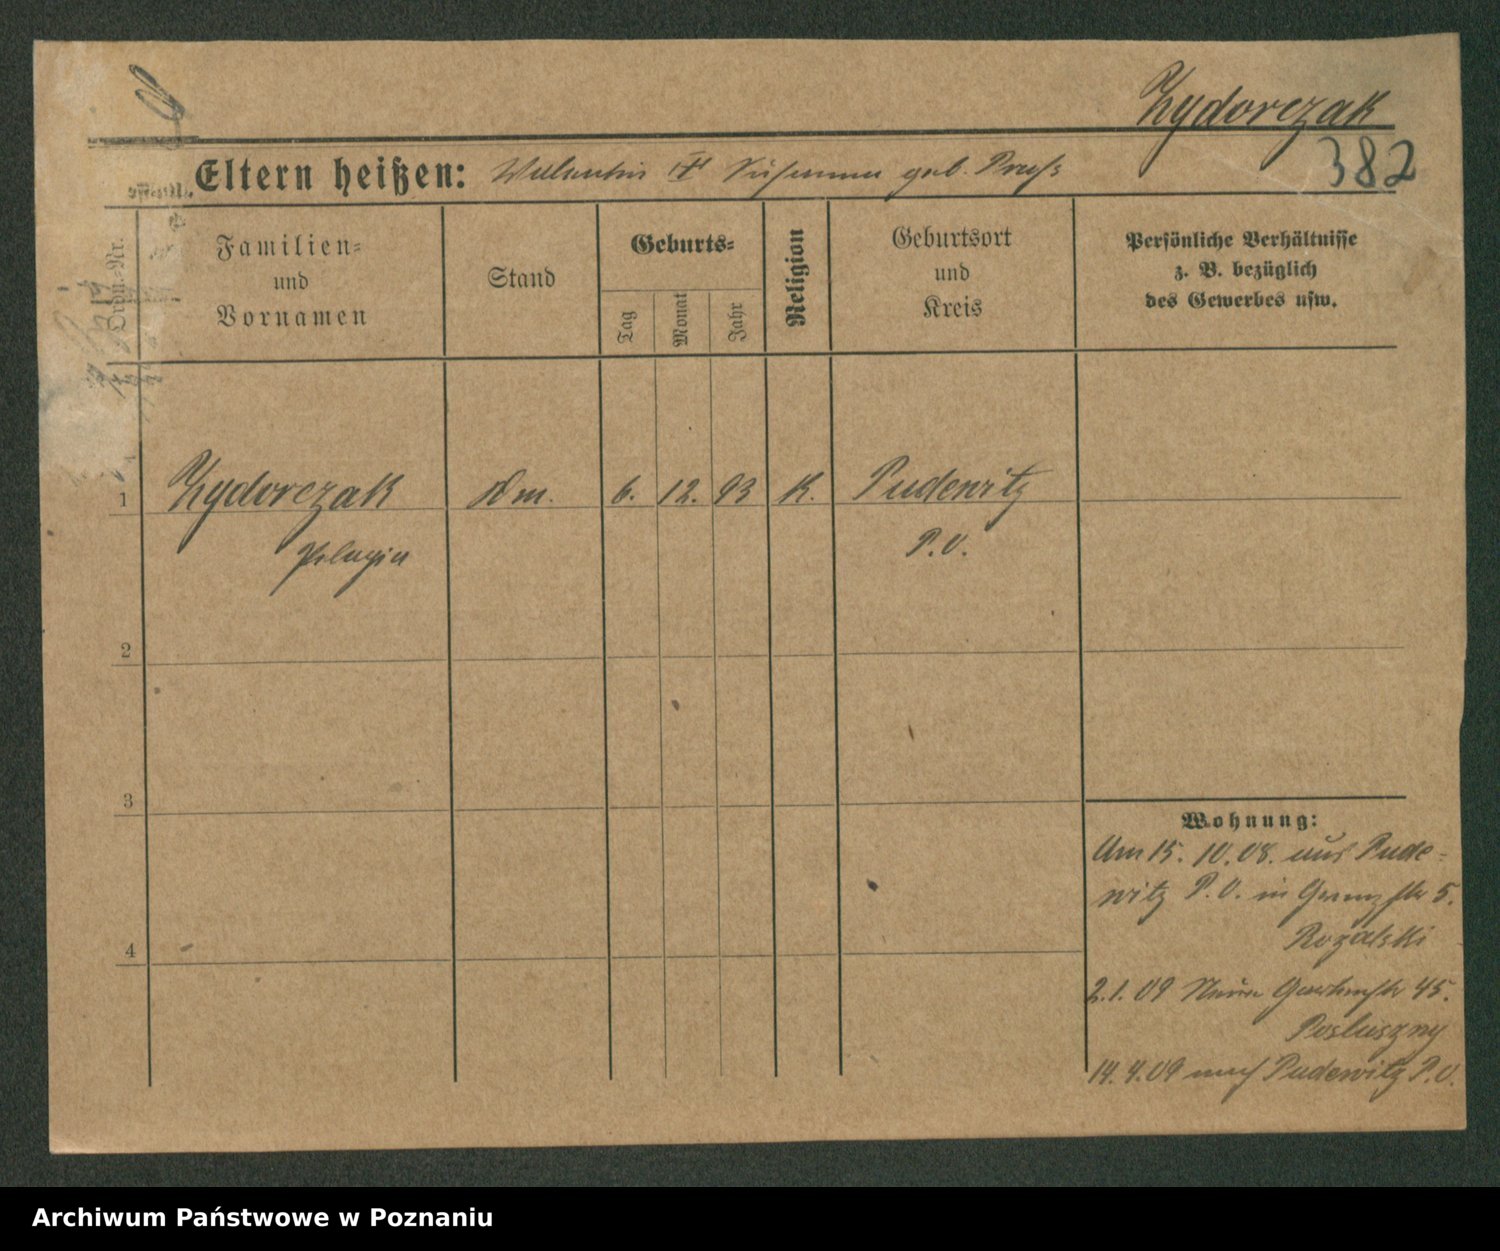 Zydorczak
382
Eltern heißen: Valentin u. Susanna geb. Preuß
Ordn.-Nr.
Familien-
und
Vornamen
Stand
Geburts-
Tag
Monat
Jahr
Religion
Geburtsort
und
Kreis
Persönliche Verhältnisse
z. B. bezüglich
des Gewerbes usw.
1 Zydorczak Dm. 6. 12. 93 K. Pudewitz
Pelagia P.O.
2
3
4
Wohnung:
Am 15. 10. 08. aus Pude-
witz P.O. in Grenzstr 5.
Rozalski
2.1.09 Neue Gartenstr 45.
Posluszny
14.4.09 nach Pudewitz P.O.
Archiwum Państwowe w Poznaniu